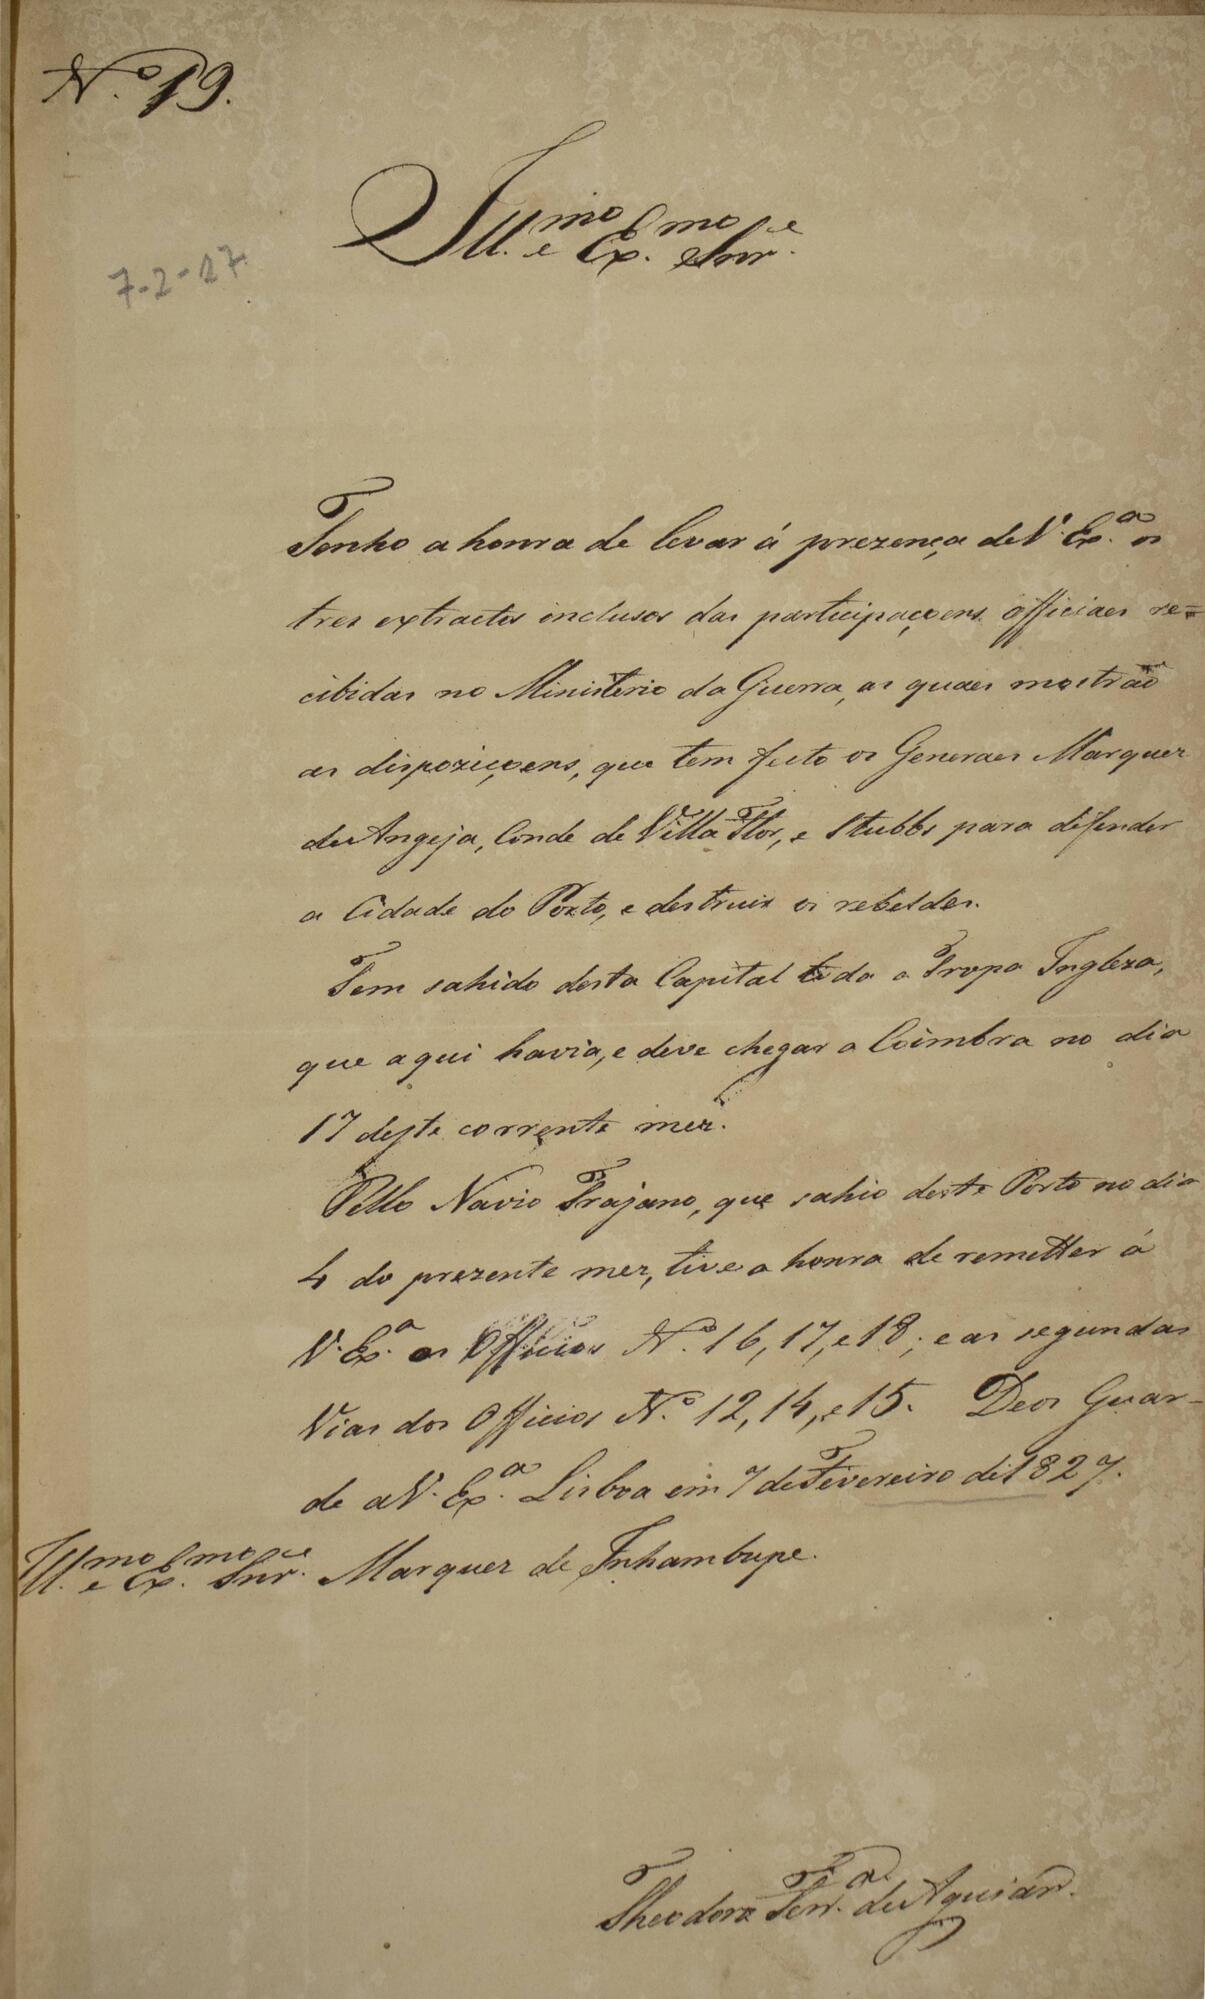 N.º 19.
Ill.mo e Ex.mo Snr.e
7-2-27.
Tenho a honra de levar á prezença de V. Ex.a os
tres extractos inclusos das participaçoens officiaes re=
cibidas no Ministerio da Guerra, as quaes mostrão
as dispoziçoens, que tem feito os Generaes Marquez
de Angeja, Conde de Villa Flor, e Stubbs para defender
a Cidade do Porto, e destruir os rebeldes.
Tem sahido desta Capital toda a Tropa Ingleza,
que aqui havia, e deve chegar a Coimbra no dia
17 deste corrente mez.
Pello Navio Trajano, que sahio deste Porto no dia
4 do prezente mez, tive a honra de remetter á
V. Ex.a os Officios N.º 16, 17, e 18; e as segundas
Vias dos Officios N.º 12, 14, e 15. Deos Guar-
de a V. Ex.a Lisboa em 7 de Fevereiro de 1827.
Ill.mo e Ex.mo Snr.e Marquez de Inhambupe.
Theodoro Ferr.a de Aguiar.